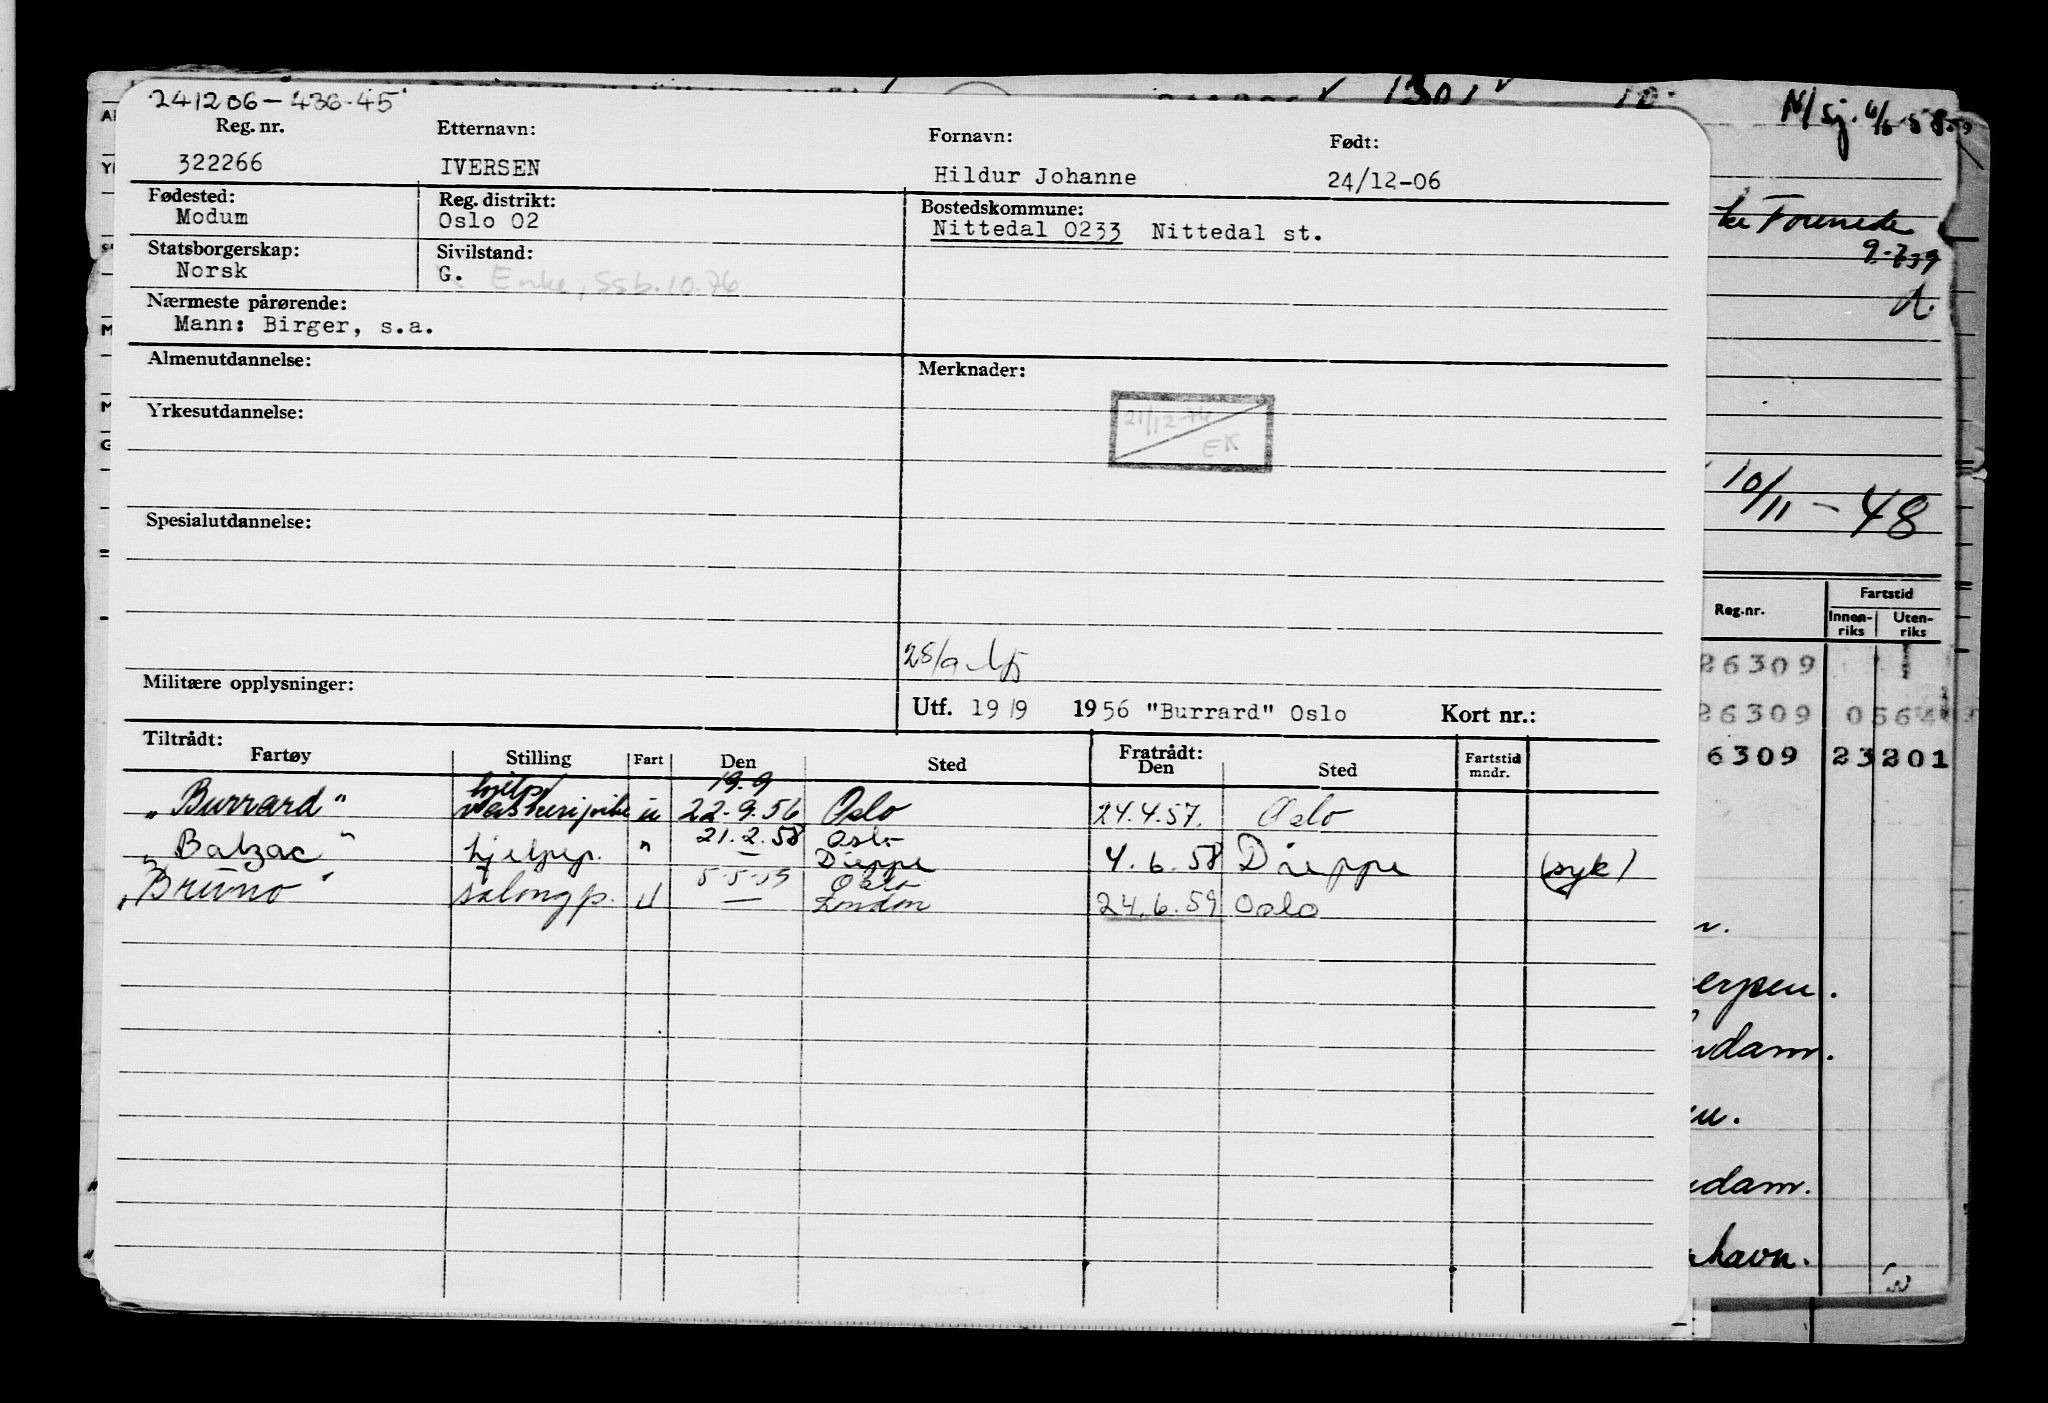 241206-436-45
Reg. nr. Etternavn: Fornavn: Født:
322266 IVERSEN Hildur Johanne 24/12-06
Fødested: Reg. distrikt: Bostedskommune:
Modum Oslo 02 Nittedal 0233 Nittedal st.
Statsborgerskap: Sivilstand:
Norsk G. Enke, Ssb.10.76
Nærmeste pårørende:
Mann: Birger, s.a.
Almenutdannelse: Merknader:
21/12-76
EK
Yrkesutdannelse:
Spesialutdannelse:
28/9
Militære opplysninger:
Utf. 19/9 1956 "Burrard" Oslo Kort nr.:
Tiltrådt: Fratrådt:
Fartøy Stilling Fart Den Sted Den Sted Fartstid mndr.
hjelp/ 19.9
"Burrard" u 22-9.56 Oslo 24.4.57. Oslo
21.2.58 Oslo
"Balzac" hjelpep. " — Dieppe 4.6.58 Dieppe (syk)
5-5-59 Oslo
"Bruno" salongp. u — London 24.6.59 Oslo
1301
N/sj. 6/5-58
9-7-39
10/11-48
Reg.nr. Fartstid
Innen-riks Uten-riks
26309
26309 0564
6309 23201
erpen.
dam.
dam.
havn.